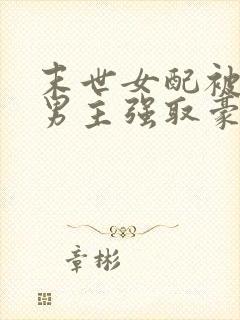 末世女配被
男主强取豪
章彬